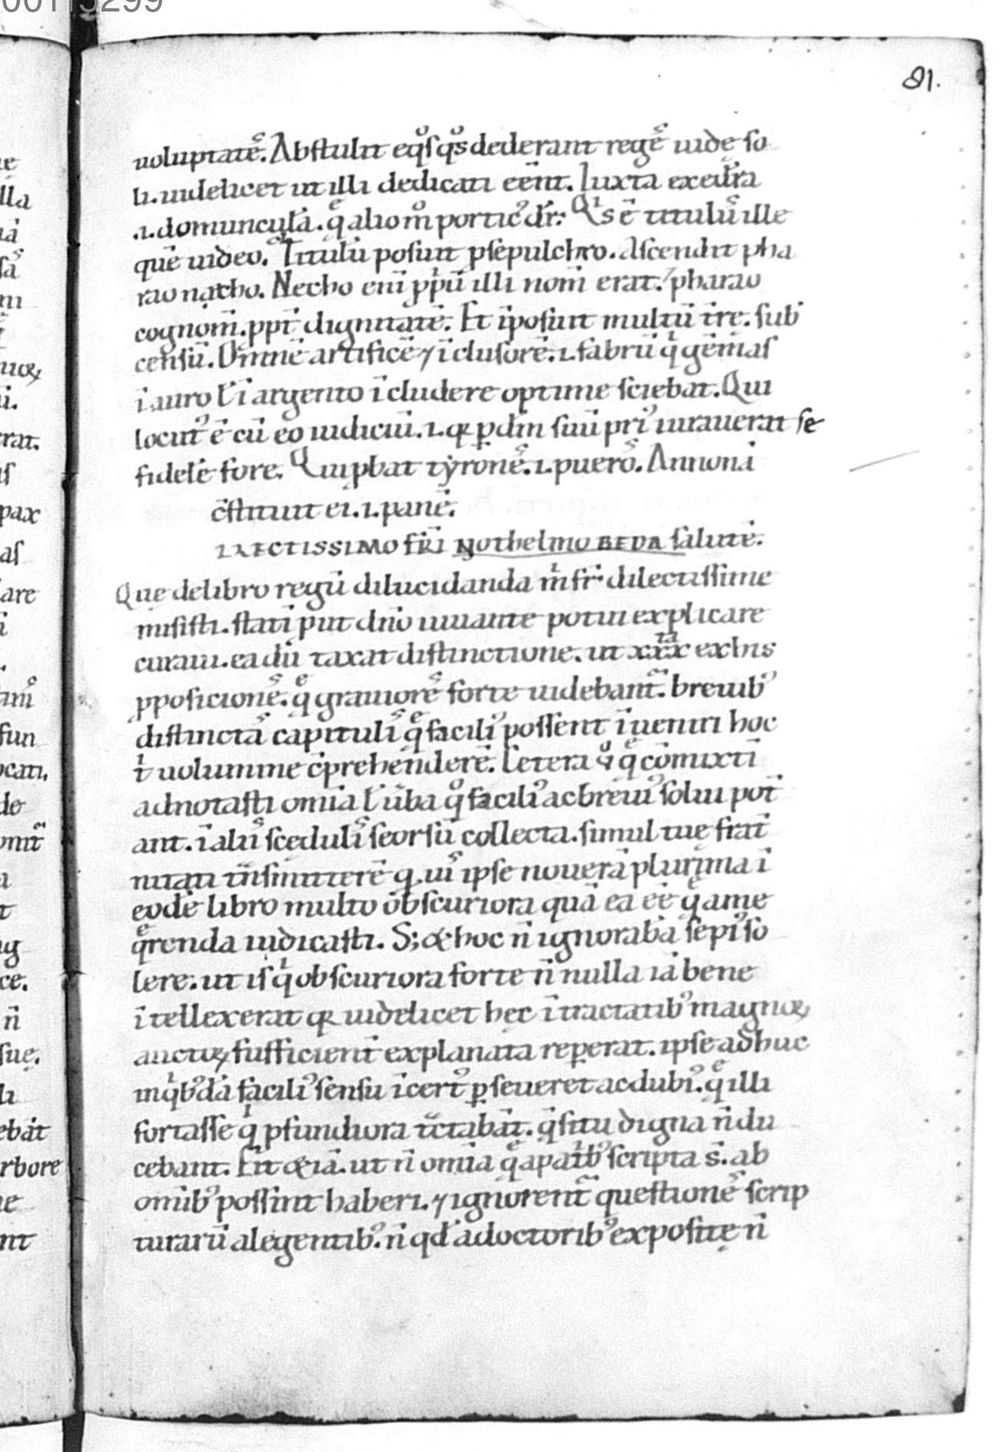 00113299
81.
uoluptatē. Abstulit eq̊s q̊s dederant regḗs uidę so
li. uidelicet ut illi dedicati eēnt. Iuxta exedrā
.i. domunculā. q̨ alio m̊ portic᾽ dr̄. Qi̇s ē titulus̄ ille
quē uideo. Titulū posuit p sepulchro. Ascendit pha
rao nęcho. Necho eni ppū illi nom̄ erat. pharao
cognom̄. ppt dignitatē. Et īposuit multū trę. sub
censū. Omnē artificē ⁊ īclusorē. i. fabrū qi gēmas
ī auro ł ī argento īcludere optime sciebat. Qui
locut᾽ ē cū eo iudiciū. i. q p dm̄ suū pri᾽ iurauerat se
fidelē fore. Qui pbat tẏronē. i. puero᾽. Annonā
c̄stituit ei. i. panē.
LXECTISSIMO FR̄I Nothelmo BEDA salutē.
Que de libro regū dilucidanda m̄ fr̄ dilectissime
misisti. statī put dno iuuante potui explicare
curaui. ea dū taxat distinctione. ut xxx ex his
pposicionē. q̨ grauiorē forte uidebant̄. breuib᾽
distinctā capitulī q̨ facili᾽ possent īueniri hoc
t uolumine c̄prehenderē. Cetera ů q̨ cōmixtī
adnotasti omīa ł ūba q̊ facili᾽ ac breui᾽ solui pot
ant. ī alii᾽ scedulī seorsū collecta. simul tuę frat
nitati tn̄smittere q uī ipse nouerā plurima ī
eodē libro multo obscuriora quā ea eē q̨ a me
q̨renda iudicasti. S; & hoc n̄ ignorabā sępi᾽ so
lere. ut is qi obscuriora forte n̄ nulla iā bene
ītellexerat q uidelicet hęc ī tractatib᾽ magnoꝝ
auctoꝝ sufficient̄ explanata repperat. ipse adhuc
ī qib᾽dā facili᾽ sensu īcert᾽ pseueret ac dubi᾽. q̨ illi
fortasse qi pfundiora tctabāt. q̄situ digna n̄ du
cebant. Fit & iā. ut n̄ omīa q̨ a patib᾽ scripta s̄. ab
omīb᾽ possint haberi. ⁊ ignorent̄ questionē scrip
turarū a legentib᾽. n̄ qd a doctorib᾽ exposite n̄